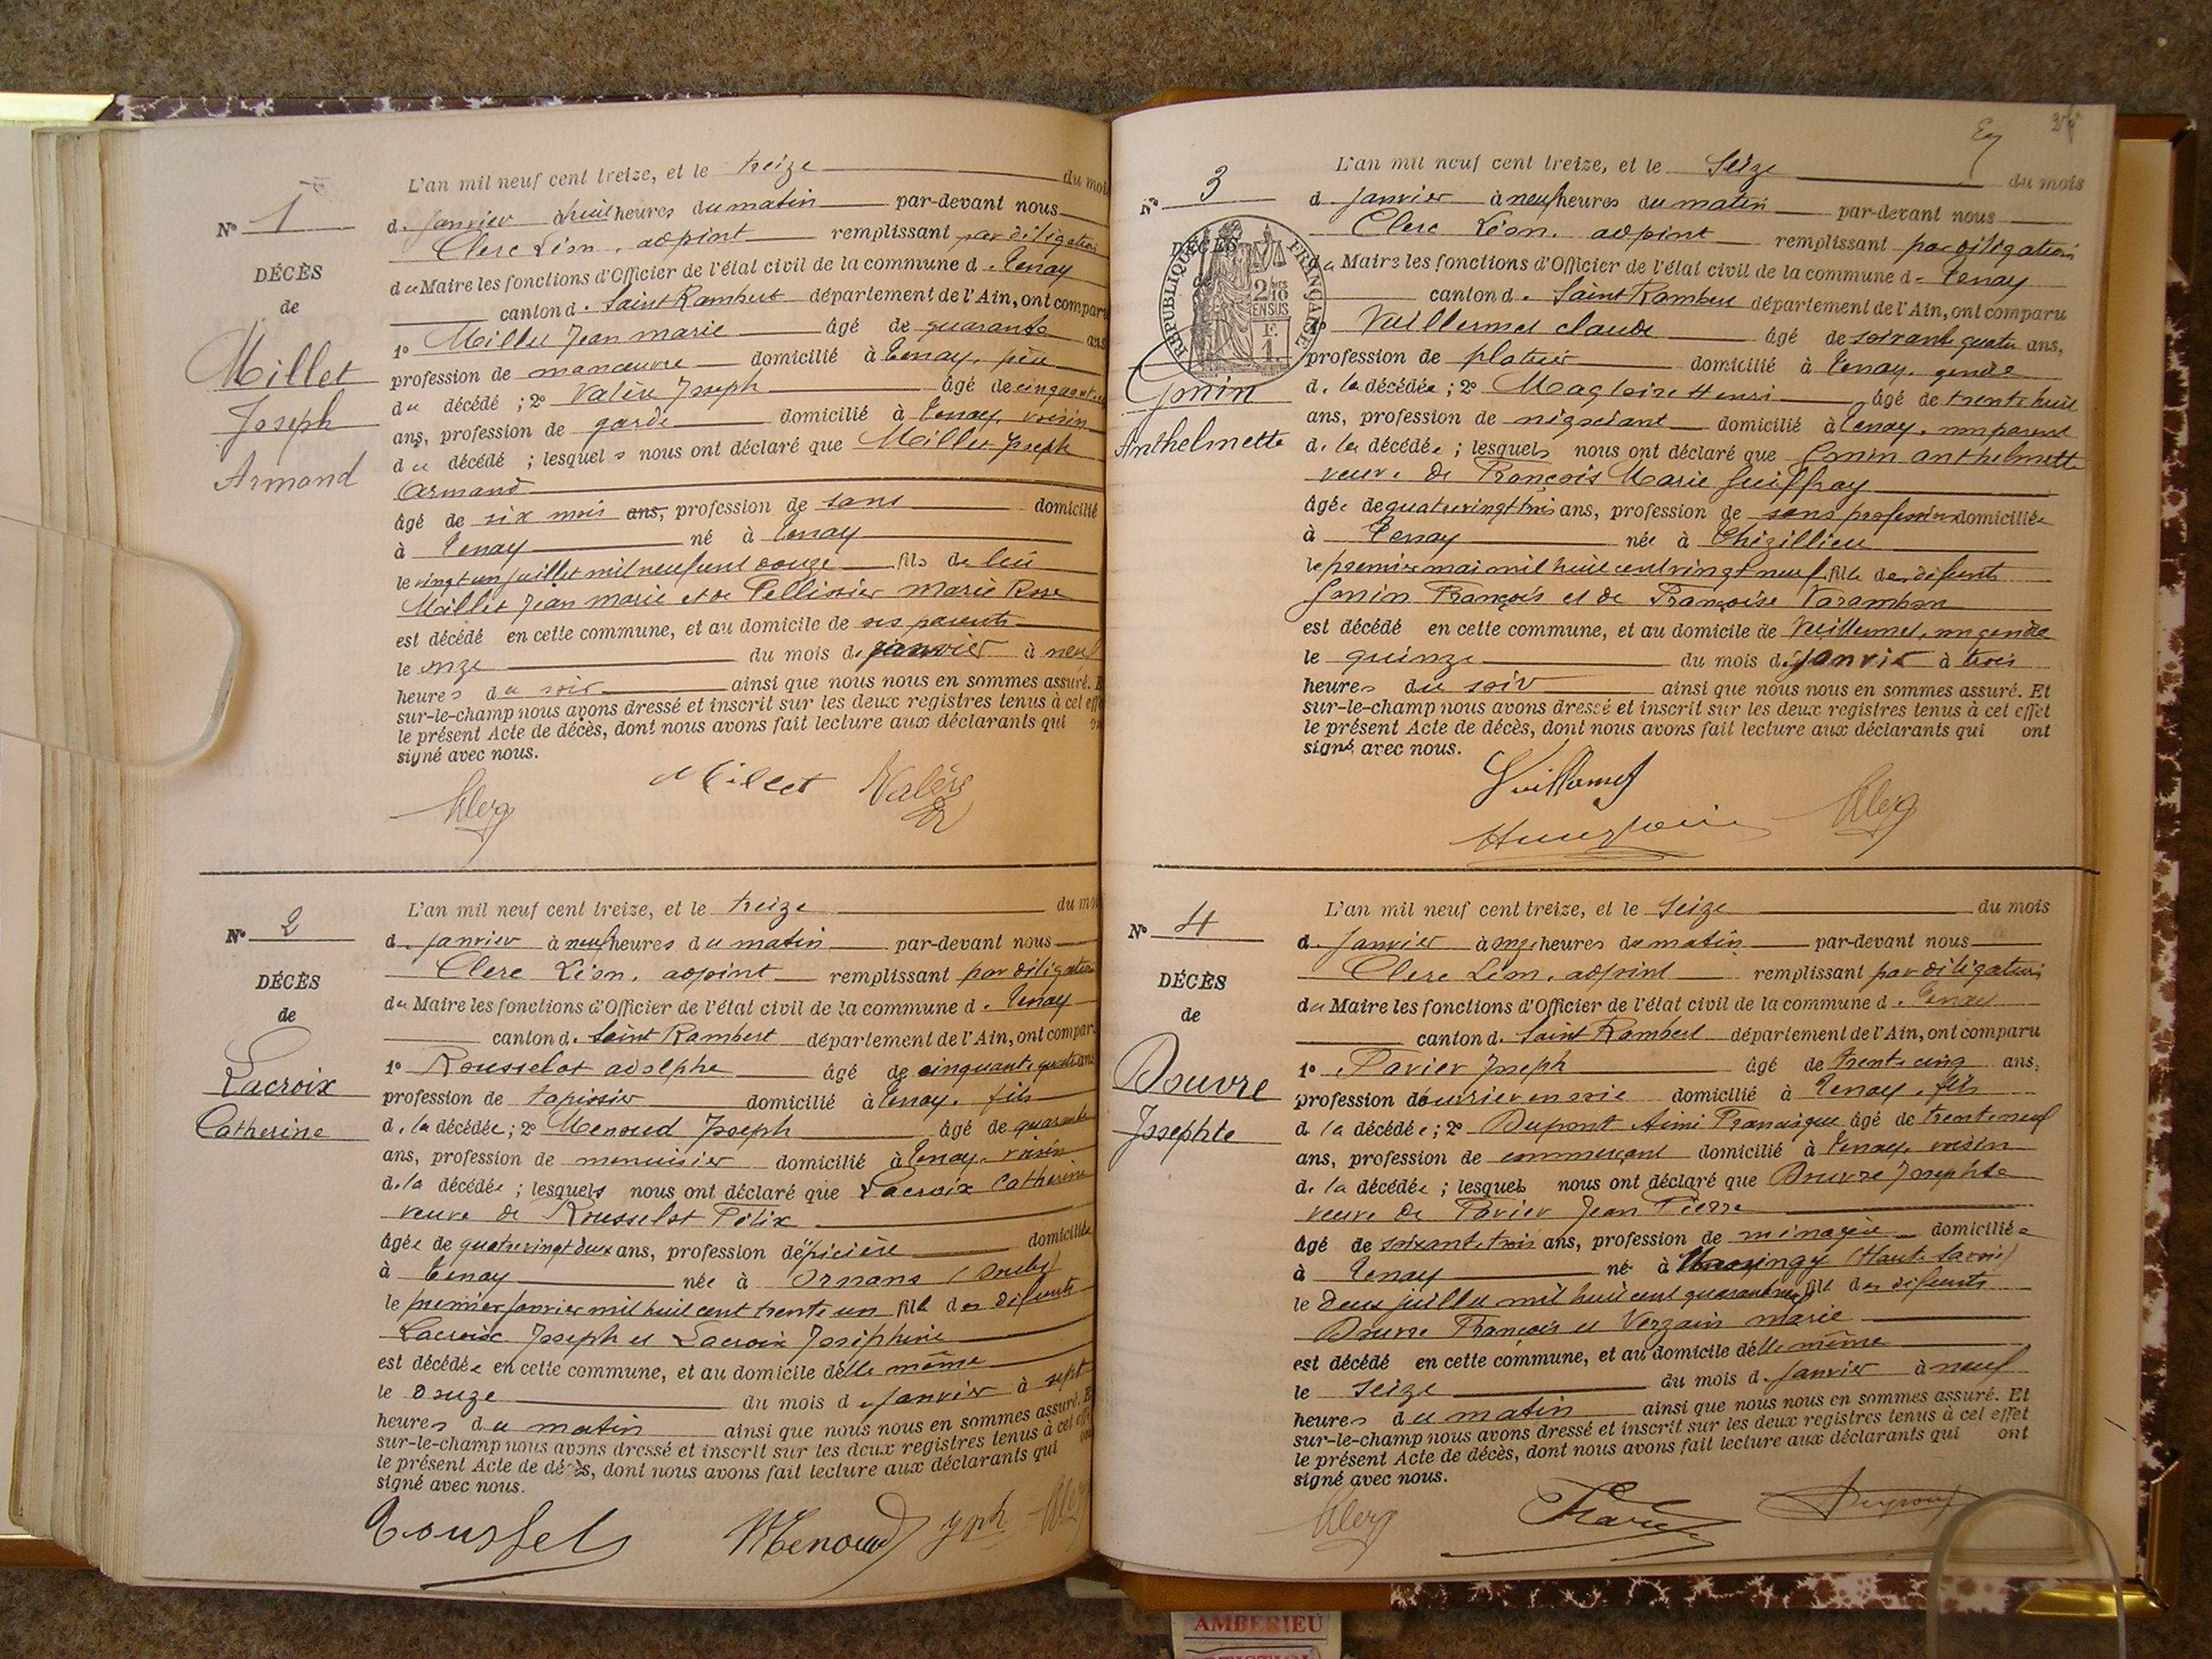 L'an mil neuf cent treize, et le treize du mois
N° 1
d. janvier à huit heures du matin par-devant nous
Clerc Léon, adjoint remplissant par délégation
DÉCÈS
du Maire les fonctions d'Officier de l'état civil de la commune d. Tenay
de
canton d. Saint Rambert département de l'Ain, ont comparu
Millet
Joseph
Armand
1° Millet Jean marie âgé de quarante ans
profession de manœuvre domicilié à Tenay, père
du décédé ; 2° Valère Joseph âgé de cinquante
ans, profession de garde domicilié à Tenay, voisin
du décédé ; lesquels nous ont déclaré que Millet Joseph
Armand
âgé de six mois ans, profession de sans domicilié
à Tenay né à Tenay
le vingt un juillet mil neuf cent douze fils de
Millet Jean marie et de Pellissier Marie Rose
est décédé en cette commune, et au domicile de ses parents
le onze du mois de janvier à neuf
heures du soir ainsi que nous nous en sommes assuré. E
sur-le-champ nous avons dressé et inscrit sur les deux registres tenus à cet eff
le présent Acte de décès, dont nous avons fait lecture aux déclarants qui
signé avec nous.
Clerc Millet Valère
L'an mil neuf cent treize, et le treize du mo
N° 2
d. janvier à neuf heures du matin par-devant nous
Clerc Léon, adjoint remplissant par délégation
DÉCÈS
du Maire les fonctions d'Officier de l'état civil de la commune d. Tenay
de
canton d. Saint Rambert département de l'Ain, ont compar
Lacroix
Catherine
1° Rousselot adolphe âgé de cinquante quatre ans
profession de tapissier domicilié à Tenay, fils
d. la décédée ; 2° Menoud Joseph âgé de quarante
ans, profession de menuisier domicilié à Tenay, voisin
d. la décédée ; lesquels nous ont déclaré que Lacroix Catherine
veuve de Rousselot Félix
âgée de quatre vingt deux ans, profession d'épicière domiciliée
à Tenay née à Ornans (Doubs)
le premier janvier mil huit cent trente un fille des défunts
Lacroix Joseph et Lacroix Joséphine
est décédée en cette commune, et au domicile d'elle même
le douze du mois de janvier à sept
heures du matin ainsi que nous nous en sommes assuré. E
sur-le-champ nous avons dressé et inscrit sur les deux registres tenus à cet effe
le présent Acte de décès, dont nous avons fait lecture aux déclarants qui
signé avec nous.
Menoud jph Clerc
L'an mil neuf cent treize, et le seize du mois
N° 3
d. janvier à neuf heures du matin par-devant nous
Clerc Léon, adjoint remplissant par délégation
DÉCÈS
RÉPUBLIQUE FRANÇAISE
du Maire les fonctions d'Officier de l'état civil de la commune d. Tenay
canton d. Saint Rambert département de l'Ain, ont comparu
Gonin
Anthelmette
1° Vuillermet claude âgé de soixante quatre ans,
profession de platrier domicilié à Tenay, gendre
d. la décédée ; 2° Magloire Henri âgé de trente huit
ans, profession de négociant domicilié à Tenay, non parent
d. la décédée ; lesquels nous ont déclaré que Gonin anthelmette
veuve de François Marie Guiffray
âgée de quatre vingt trois ans, profession de sans profession domiciliée
à Tenay née à Chézillieu
le premier mai mil huit cent vingt neuf, fille des défunts
Gonin François et de Françoise Varambon
est décédé en cette commune, et au domicile de Vuillermet, son gendre
le quinze du mois de janvier à trois
heures du soir ainsi que nous nous en sommes assuré. Et
sur-le-champ nous avons dressé et inscrit sur les deux registres tenus à cet effet
le présent Acte de décès, dont nous avons fait lecture aux déclarants qui ont
signé avec nous.
Vuillermet
Clerc
L'an mil neuf cent treize, et le seize du mois
N° 4
d. janvier à onze heures du matin par-devant nous
Clerc Léon, adjoint remplissant par délégation
DÉCÈS
du Maire les fonctions d'Officier de l'état civil de la commune d. Tenay
de
canton d. Saint Rambert département de l'Ain, ont comparu
Douvre
Josephte
1° Favier Joseph âgé de trente cinq ans,
profession d'ouvrier en soie domicilié à Tenay, fils
d. la décédée ; 2° Dupont Aimé Francisque âgé de trente neuf
ans, profession de commerçant domicilié à Tenay, voisin
d. la décédée ; lesquels nous ont déclaré que Douvre Josephte
veuve de Favier Jean Pierre
âgé de soixante trois ans, profession de ménagère domiciliée
à Tenay né à Massingy (Haute Savoie)
le deux juillet mil huit cent quarante neuf fille des défunts
Douvre François et Verzain marie
est décédé en cette commune, et au domicile d'elle même
le seize du mois d. janvier à neuf
heures du matin ainsi que nous nous en sommes assuré. Et
sur-le-champ nous avons dressé et inscrit sur les deux registres tenus à cet effet
le présent Acte de décès, dont nous avons fait lecture aux déclarants qui ont
signé avec nous.
Clerc Favier Dupont
AMBERIEU